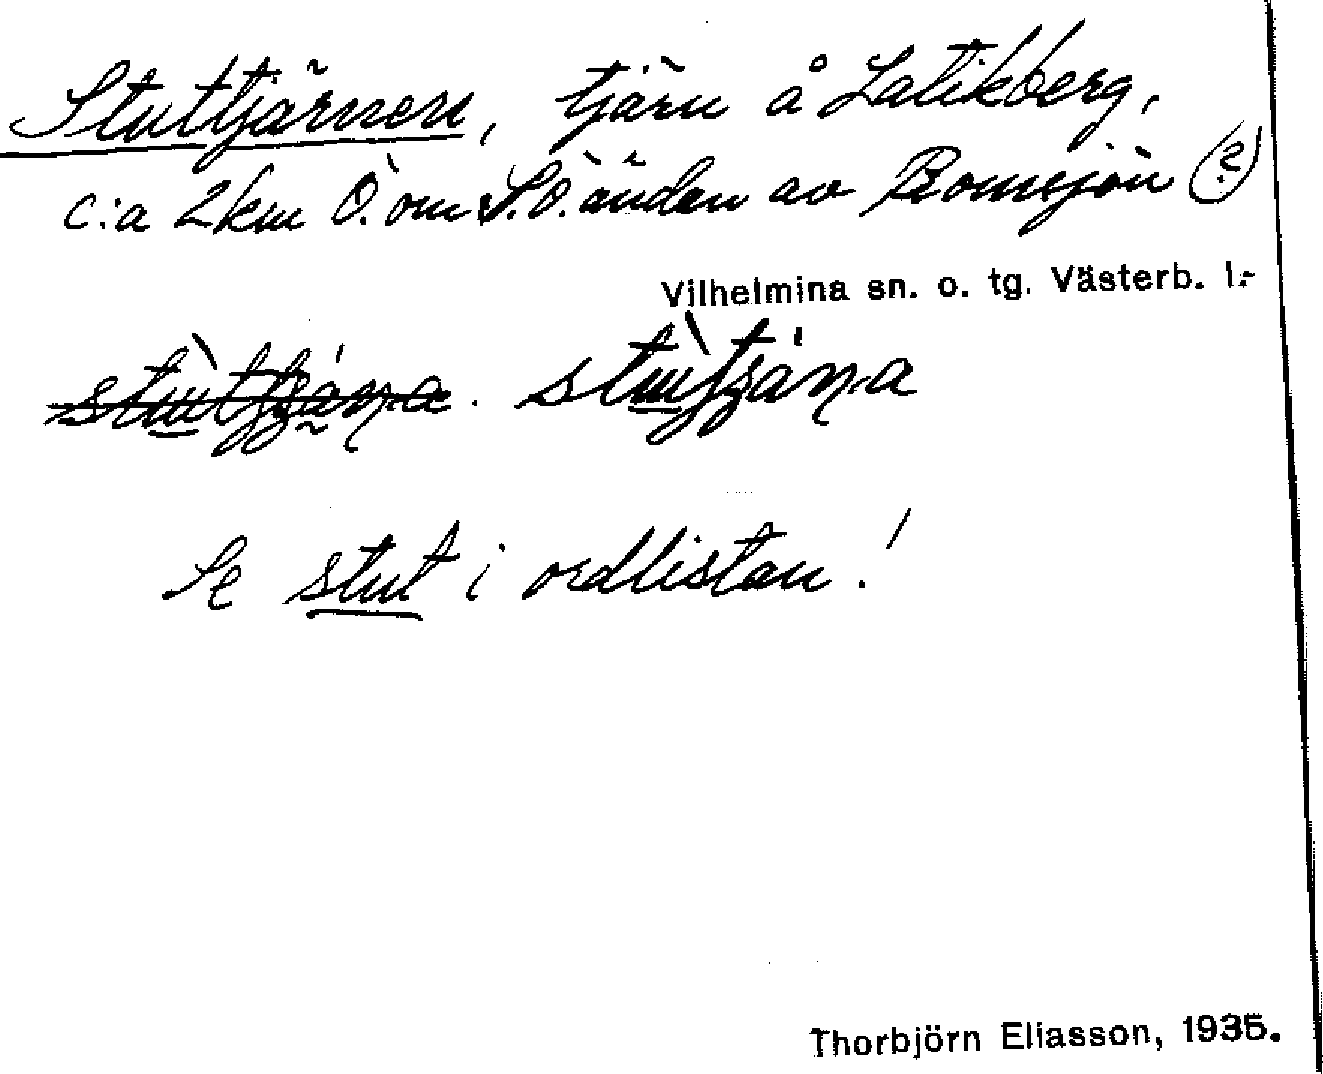 Stuttjärnen, tjärn å Latikberg,
c:a 2km Ö. om S.Ö. änden av Bomsjön (?)
Vilhelmina sn. o. tg. Västerb. l:-
Se stut i ordlistan!
Thorbjörn Eliasson, 1935.